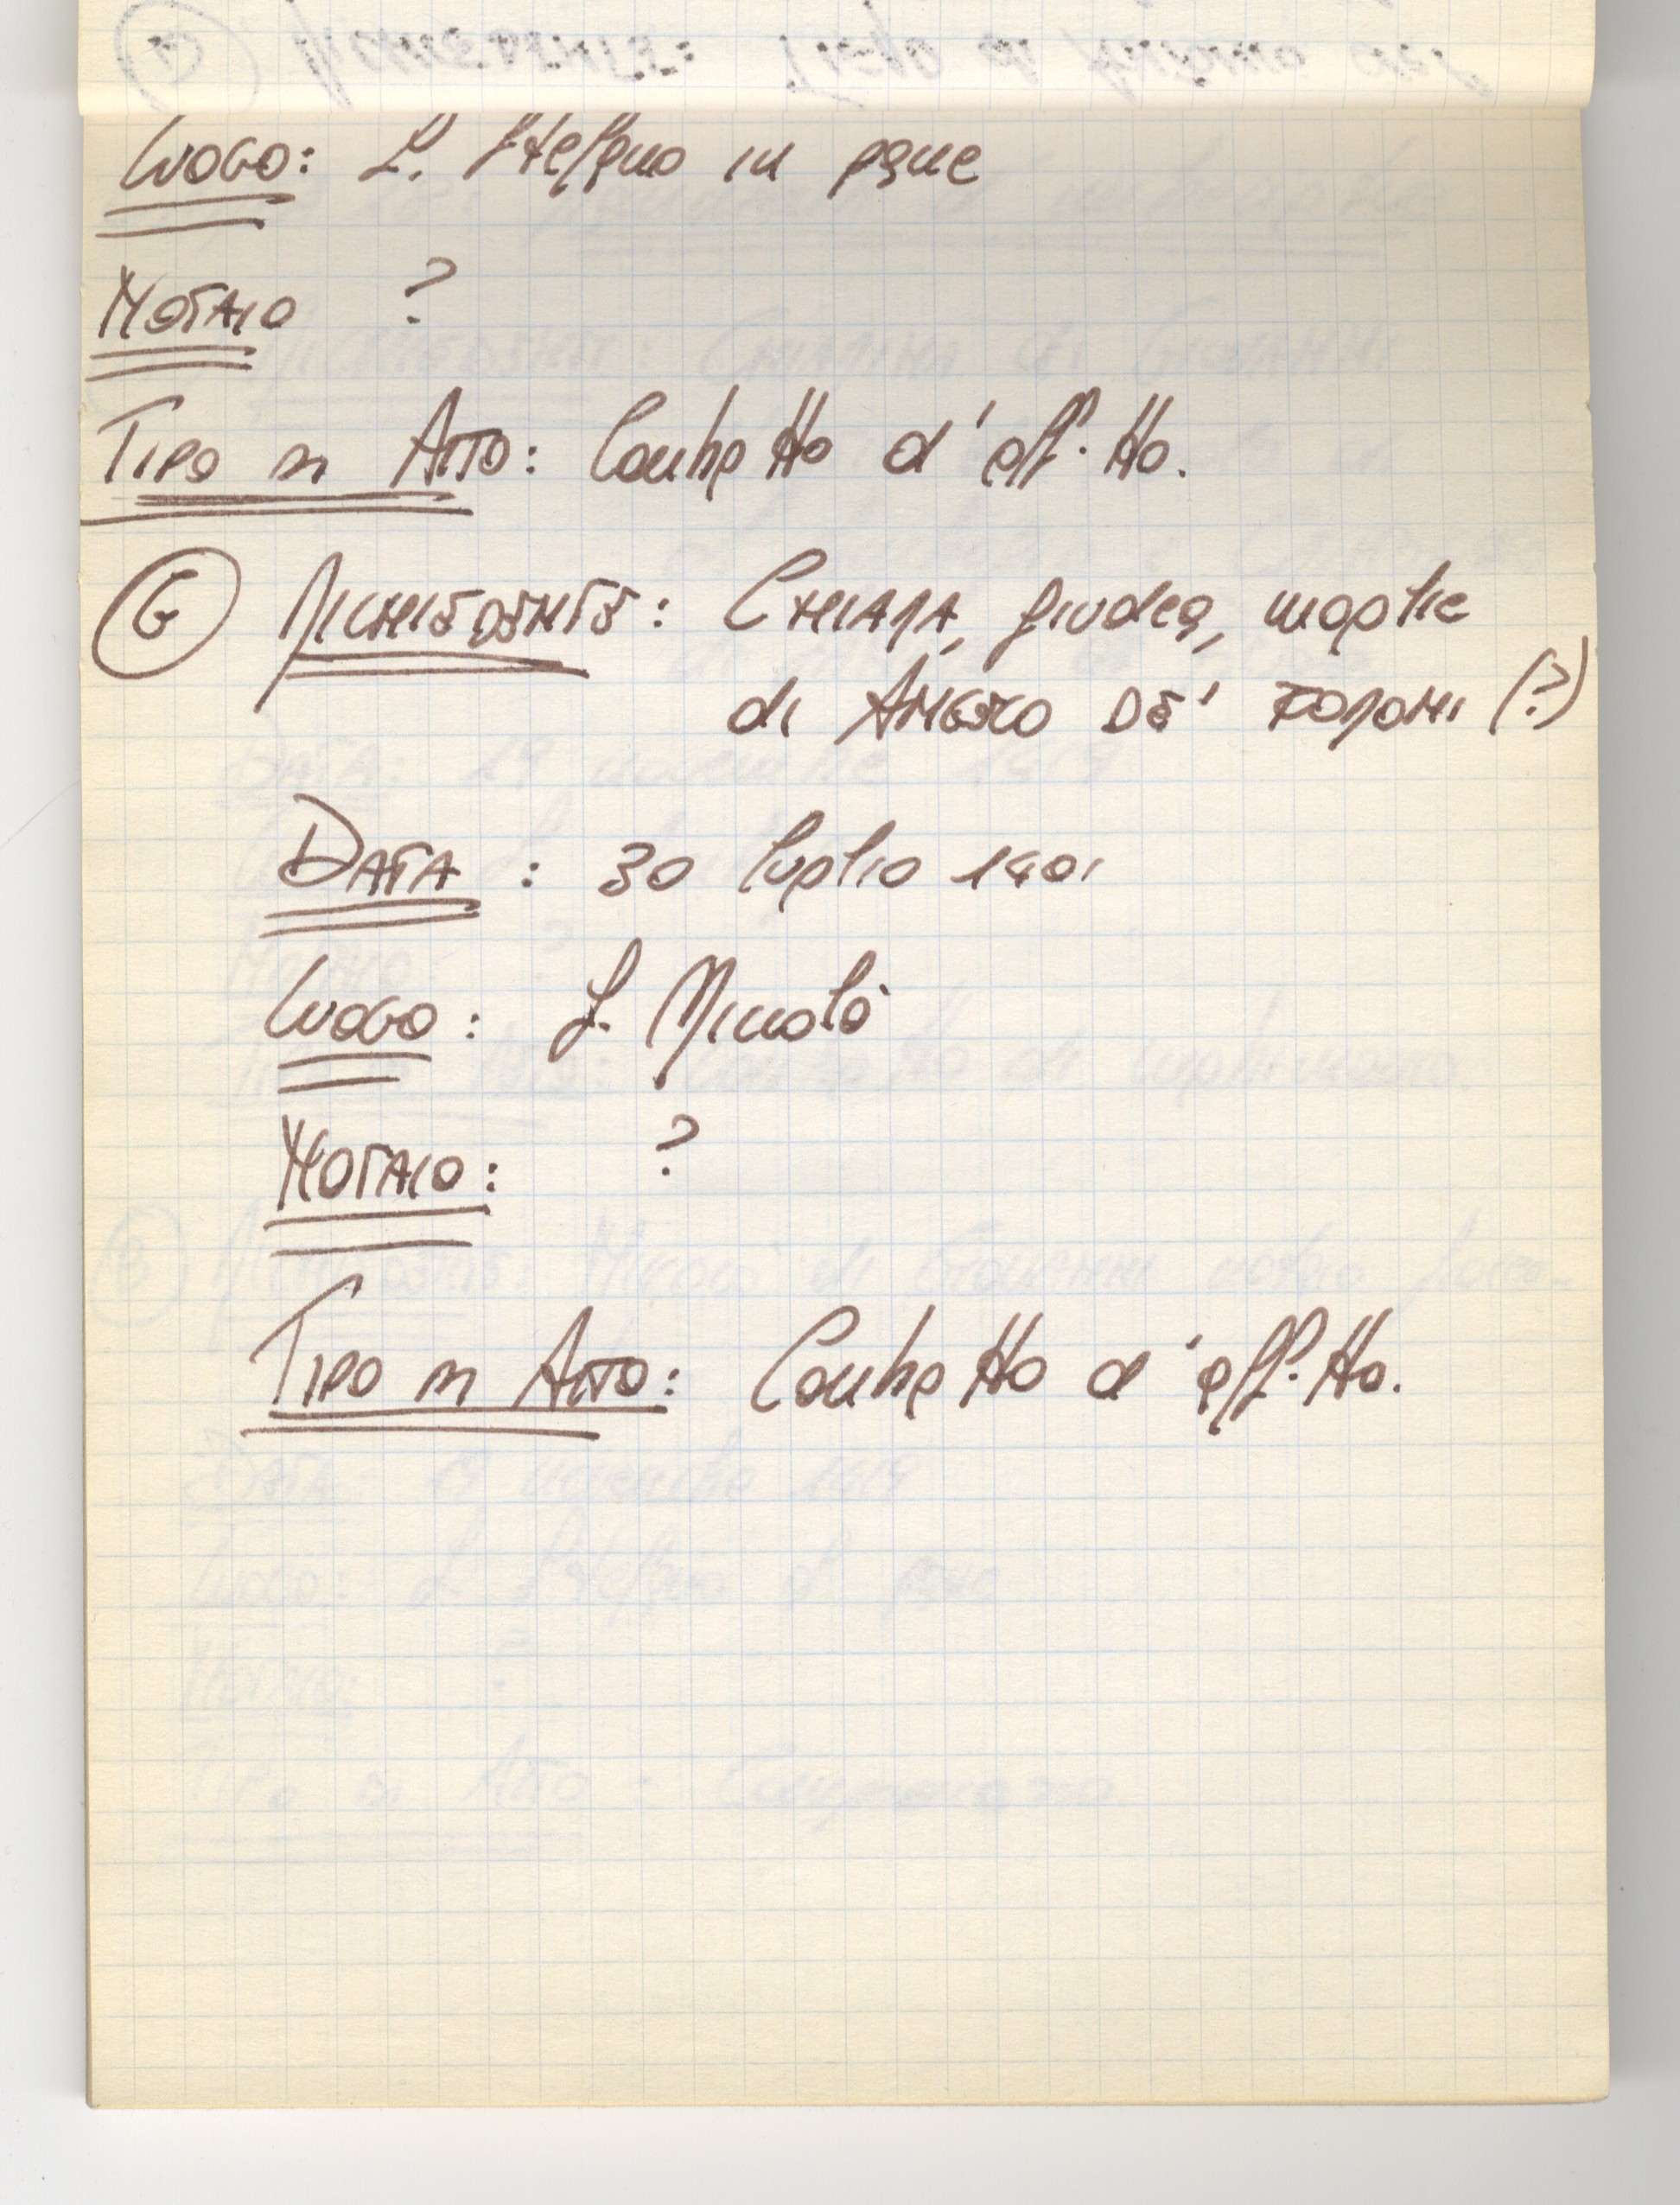 Luogo: S. Stefano in pane
Notaio ?
Tipo di Atto: Contratto d'aff.tto.
6 Richiedente: Chiara, giudea, moglie
di Angelo de' (?)
Data: 30 luglio 1401
Luogo: S. Niccolò
Notaio: ?
Tipo di Atto: Contratto d'aff.tto.